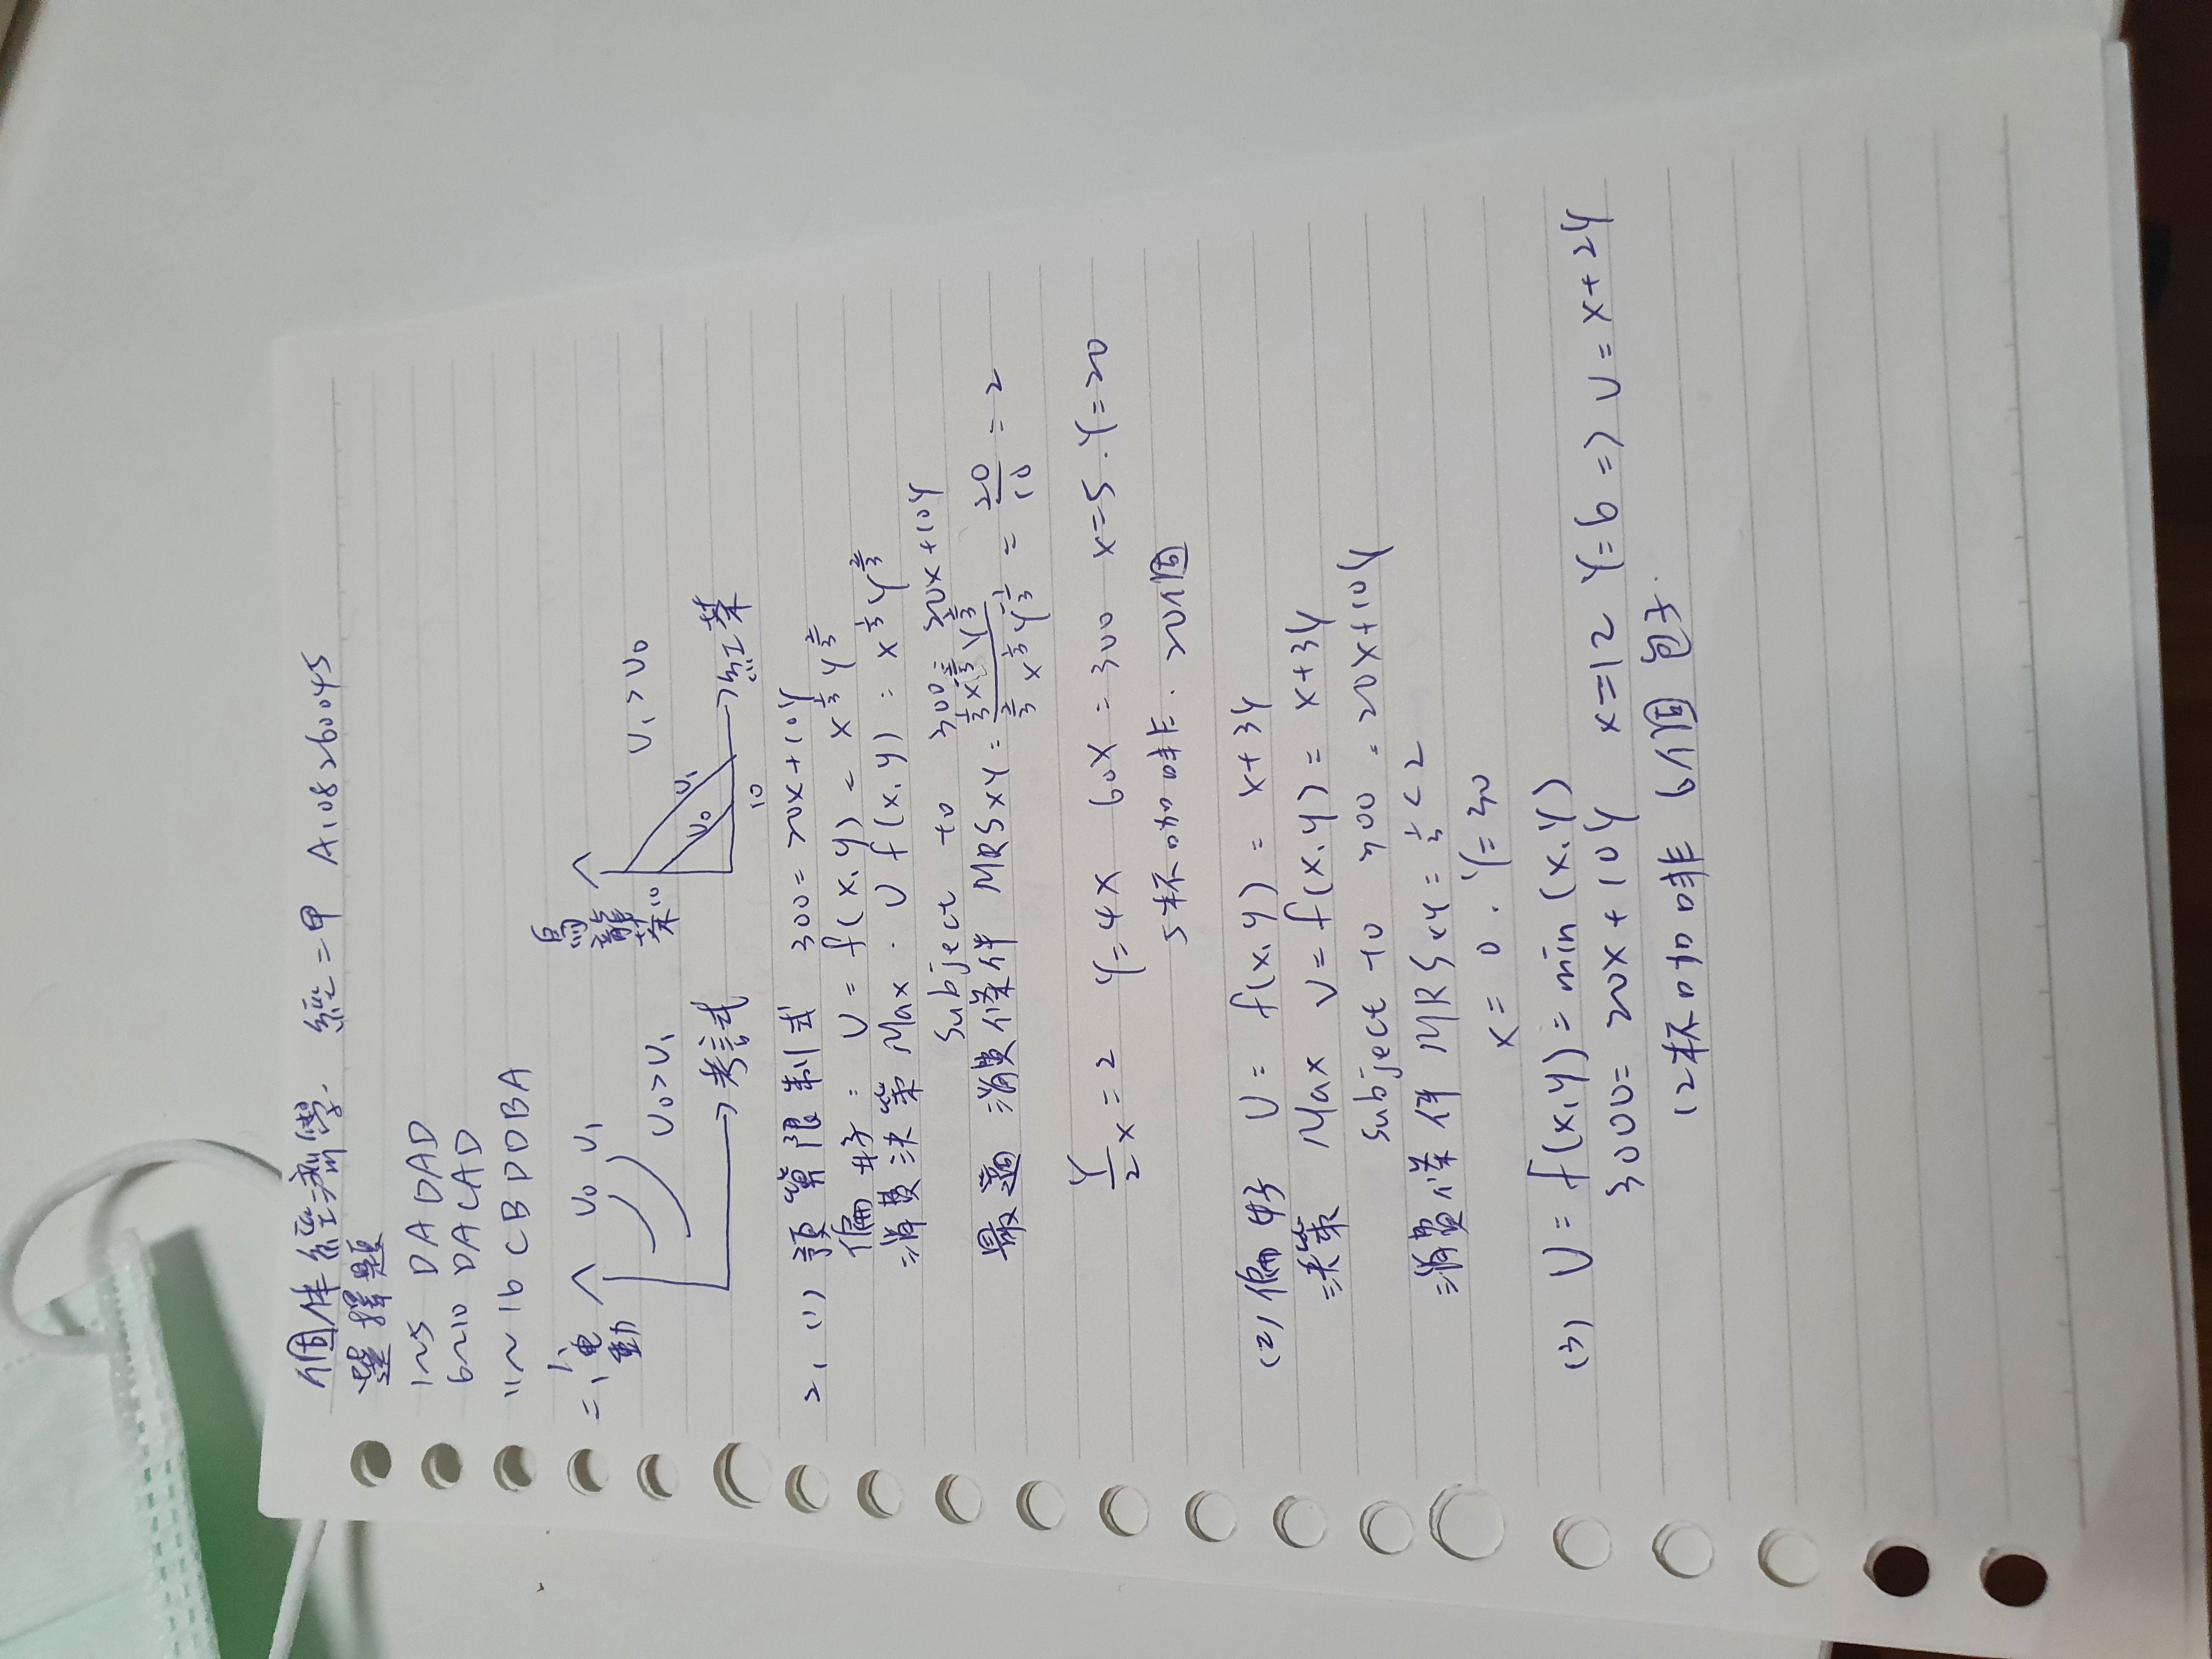 個体經濟學. 經二甲 A108260045
選擇題
1~5 DADAD
6~10 DACAD
11~16 CBDDBA
二, 1, 電動 U0 U1
U0>U1
考試
烏龍茶 10
U1>U0
U0 U1
10
紅茶
2, (1) 預算限制式 300=20x+10y
偏好: U = f(x,y) = x^1/3 y^2/3
消費決策 Max . U f(x,y) = x^1/3 y^2/3
subject to 300=20x+10y
最適消費條件 MRSxy = (1/3 x^-2/3 y^2/3)/(2/3 x^1/3 y^-1/3) = 20/10 = 2
y/2x = 2 y=4x 60x=300 x=5. y=20
5杯咖啡. 20個
(2) 偏好 U = f(x,y) = x+3y
決策 Max U=f(x,y) = x+3y
subject to 300 = 20x+10y
消費條件 MRSxy = 1/3 < 2
x = 0. y=30
(3) U = f(x,y) = min (x,y)
3000= 20x+10y x=12 y=6 => U = x+2y
12杯咖啡 6個包子.